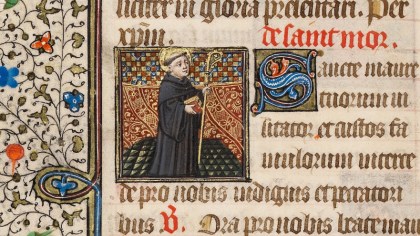 in gloria presentari. Per
xpm. de saint mor.
Sancte maure
et custos fa
mulorum interce
de pro nobis indignis et peccatori
bus V. Ora pro nobis beate mau